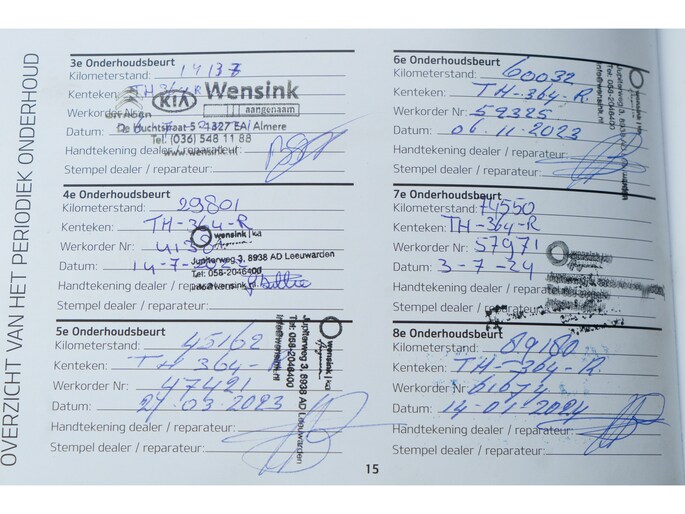 OVERZICHT VAN HET PERIODIEK ONDERHOUD
3e Onderhoudsbeurt
Kilometerstand:
Kenteken: TH-364-R
Werkorder
Datum:
Handtekening dealer / reparateur:
Stempel dealer / reparateur:
KIA Wensink
aangenaam
1327 EA Almere
Tel. (036) 548 11 88
www.wensink.nl
4e Onderhoudsbeurt
Kilometerstand: 29801
Kenteken: TH-364-R
Werkorder Nr:
Datum: 14-7-2022
Handtekening dealer / reparateur:
Stempel dealer / reparateur:
wensink kia
Jupiterweg 3, 8938 AD Leeuwarden
Tel: 058-2046400
info@wensink.nl
5e Onderhoudsbeurt
Kilometerstand: 45162
Kenteken: TH-364-R
Werkorder Nr: 47421
Datum: 03-2023
Handtekening dealer / reparateur:
Stempel dealer / reparateur:
wensink kia
Jupiterweg 3, 8938 AD Leeuwarden
Tel: 058-2046400
info@wensink.nl
6e Onderhoudsbeurt
Kilometerstand: 60032
Kenteken: TH-364-R.
Werkorder Nr: 59325
Datum: 06.11-2023
Handtekening dealer / reparateur:
Stempel dealer / reparateur:
wensink
Jupiterweg 3, 8938
Tel: 058-2046400
info@wensink.nl
7e Onderhoudsbeurt
Kilometerstand: 74550
Kenteken: TH-364-R
Werkorder Nr: 57971
Datum: 3-7-24
Handtekening dealer / reparateur:
Stempel dealer / reparateur:
wensink kia
8e Onderhoudsbeurt
Kilometerstand: 89180
Kenteken: TH-364-R.
Werkorder Nr: 61674
Datum: 14-01-2024
Handtekening dealer / reparateur:
Stempel dealer / reparateur:
15